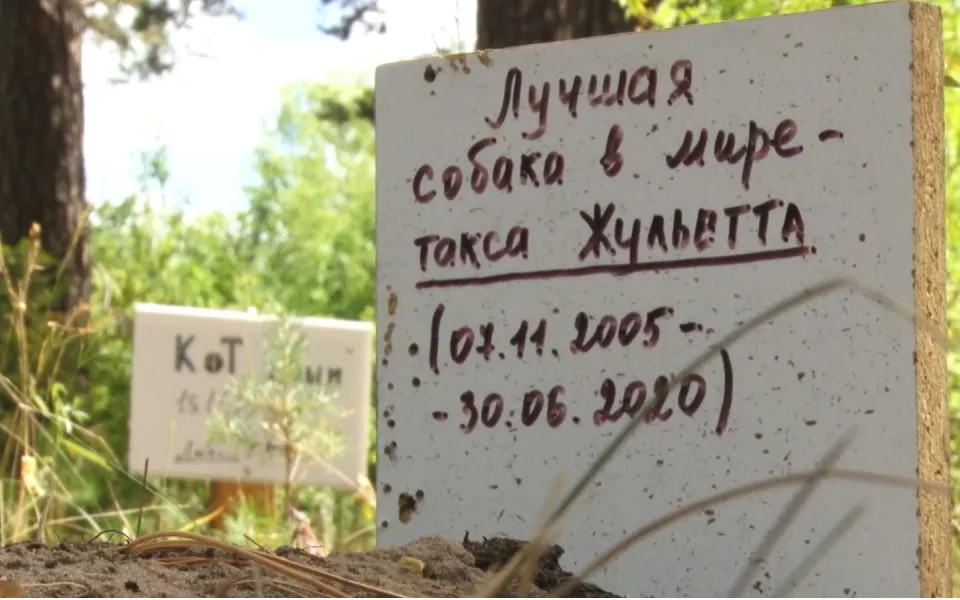 Лучшая
собака в мире -
такса ЖУЛЬЕТТА
(07.11.2005 -
- 30.06.2020)
КОТ